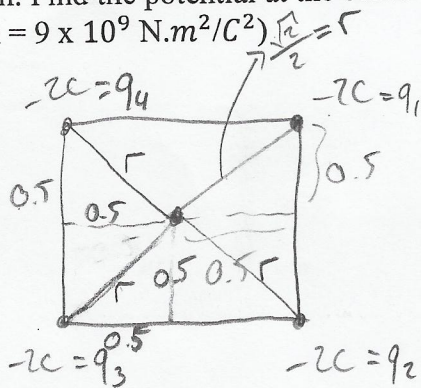 Find the potential at the
= 9 x 10⁹ N.m²/C²) √2/2 = r
-2C = q4
-2C = q1
r
0.5
0.5
0.5
r
0.5
0.5
r
0.5
-2C = q3
-2C = q2